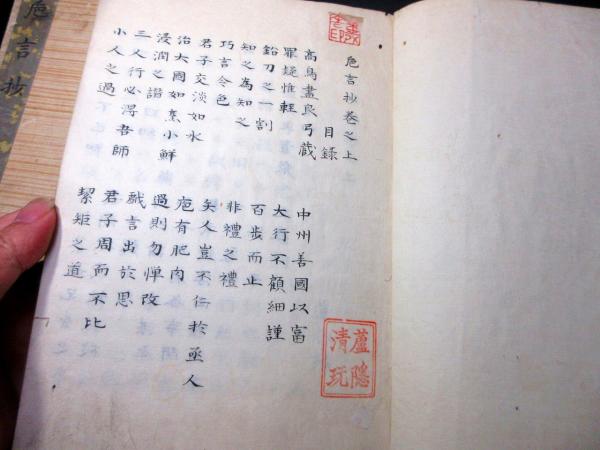 卮言抄卷之上
目録
高鳥盡良弓蔵
罪疑惟輕
鉛刀之一割
知之為知之
巧言令色
君子交淡如水
治大國如烹小鮮
浸潤之譖
三人行必得吾師
小人之過
中州善國以富
大行不顧細謹
百步而止
非禮之禮
矢人豈不仁於函人
庖有肥肉
過則勿憚改
戲言出於思
君子周而不比
絜矩之道
蘆隠
清玩
卮言抄